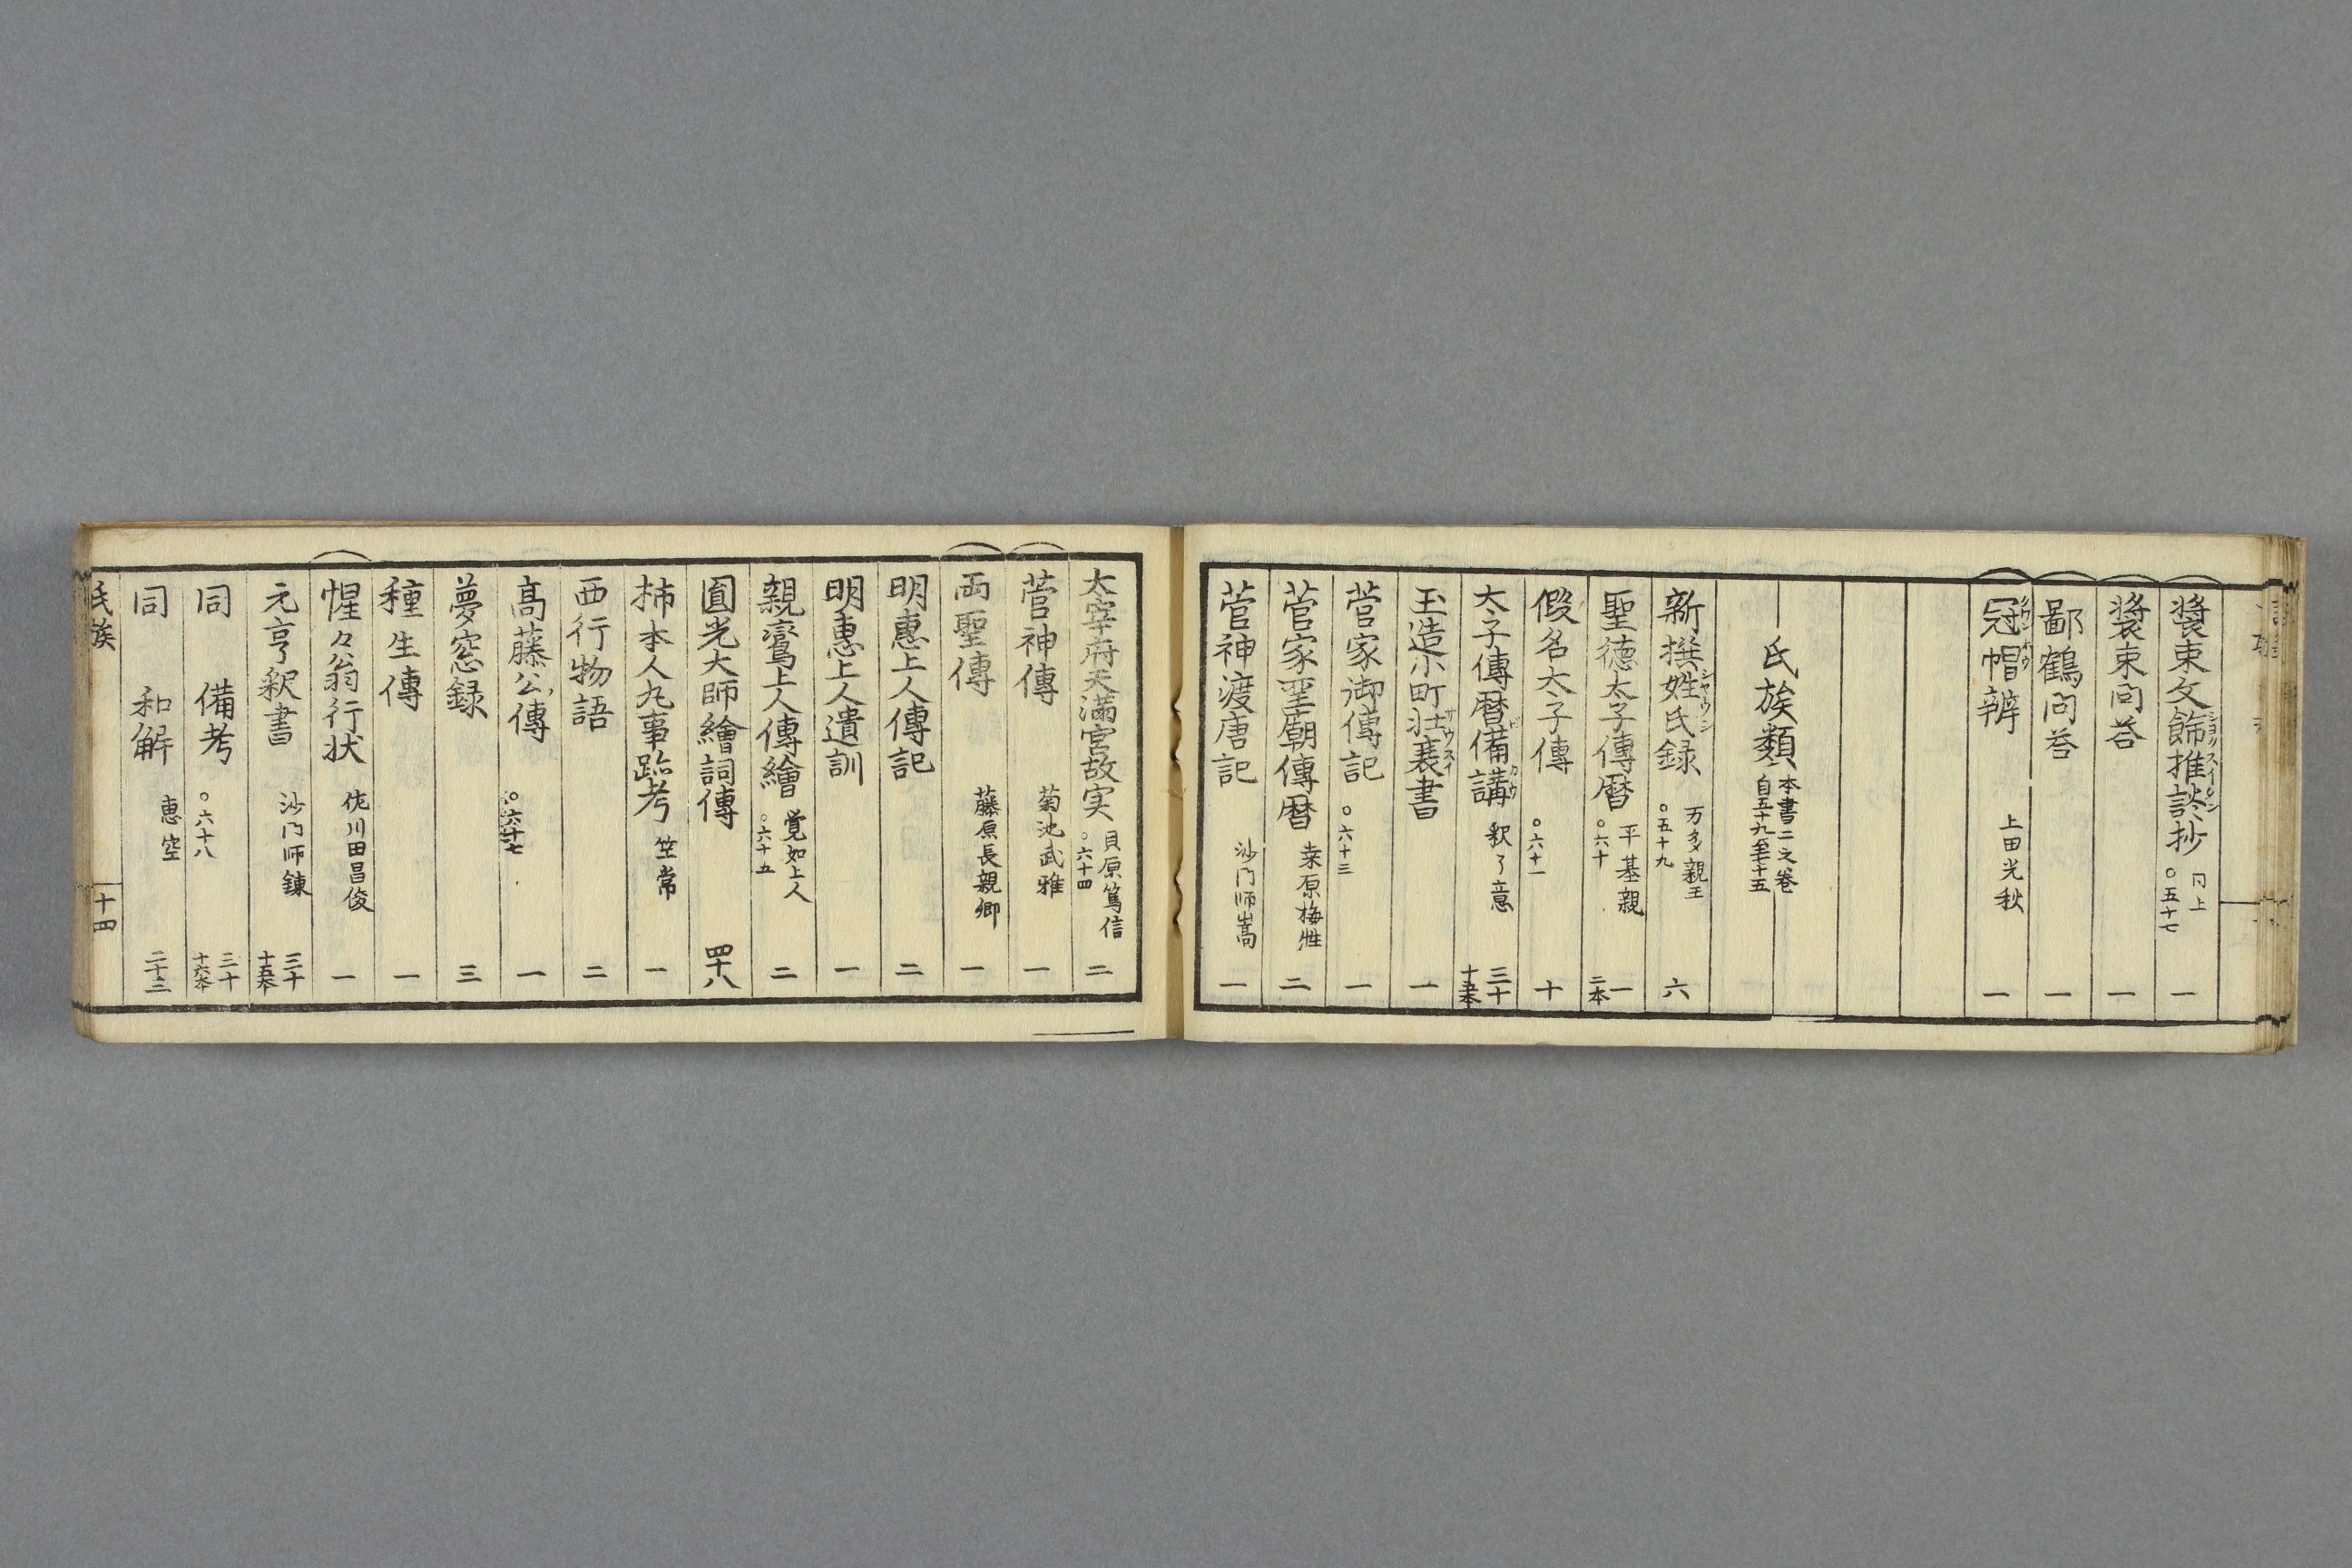 裝束文飾推談抄 同上 ○五十七 一
裝束問答 一
鄙鶴問答 一
冠帽辨 上田光秋 一
氏族類 本書二之巻 自五十九至七十五
新撰姓氏録 シヤウシ 万多親王 ○五十九 六
聖徳太子傳暦 平基親 ○六十 一 二本
假名太子傳 ○六十一 十
太子傳暦備講 ビ カウ 釈了意 三十 十五本
玉造小町壯衰書 サウスイ 一
菅家御傳記 ○六十三 一
菅家聖廟傳暦 桒原梅性 二
菅神渡唐記 沙門師嵩 一
太宰府天満宮故実 貝原篤信 ○六十四 二
菅神傳 菊池武雅 一
両聖傳 藤原長親卿 一
明惠上人傳記 二
明惠上人遺訓 一
親鸞上人傳繪 覚如上人 ○六十五 二
圓光大師繪詞傳 四十八
柿本人丸事跡考 竺常 一
西行物語 二
高藤公傳 ○六十七 一
夢窓録 三
種生傳 一
惺々翁行状 佐川田昌俊 一
元亨釈書 沙門師錬 三十 十五本
同 備考 ○六十八 三十 十六本
同 和解 惠空 二十三
氏族 十四